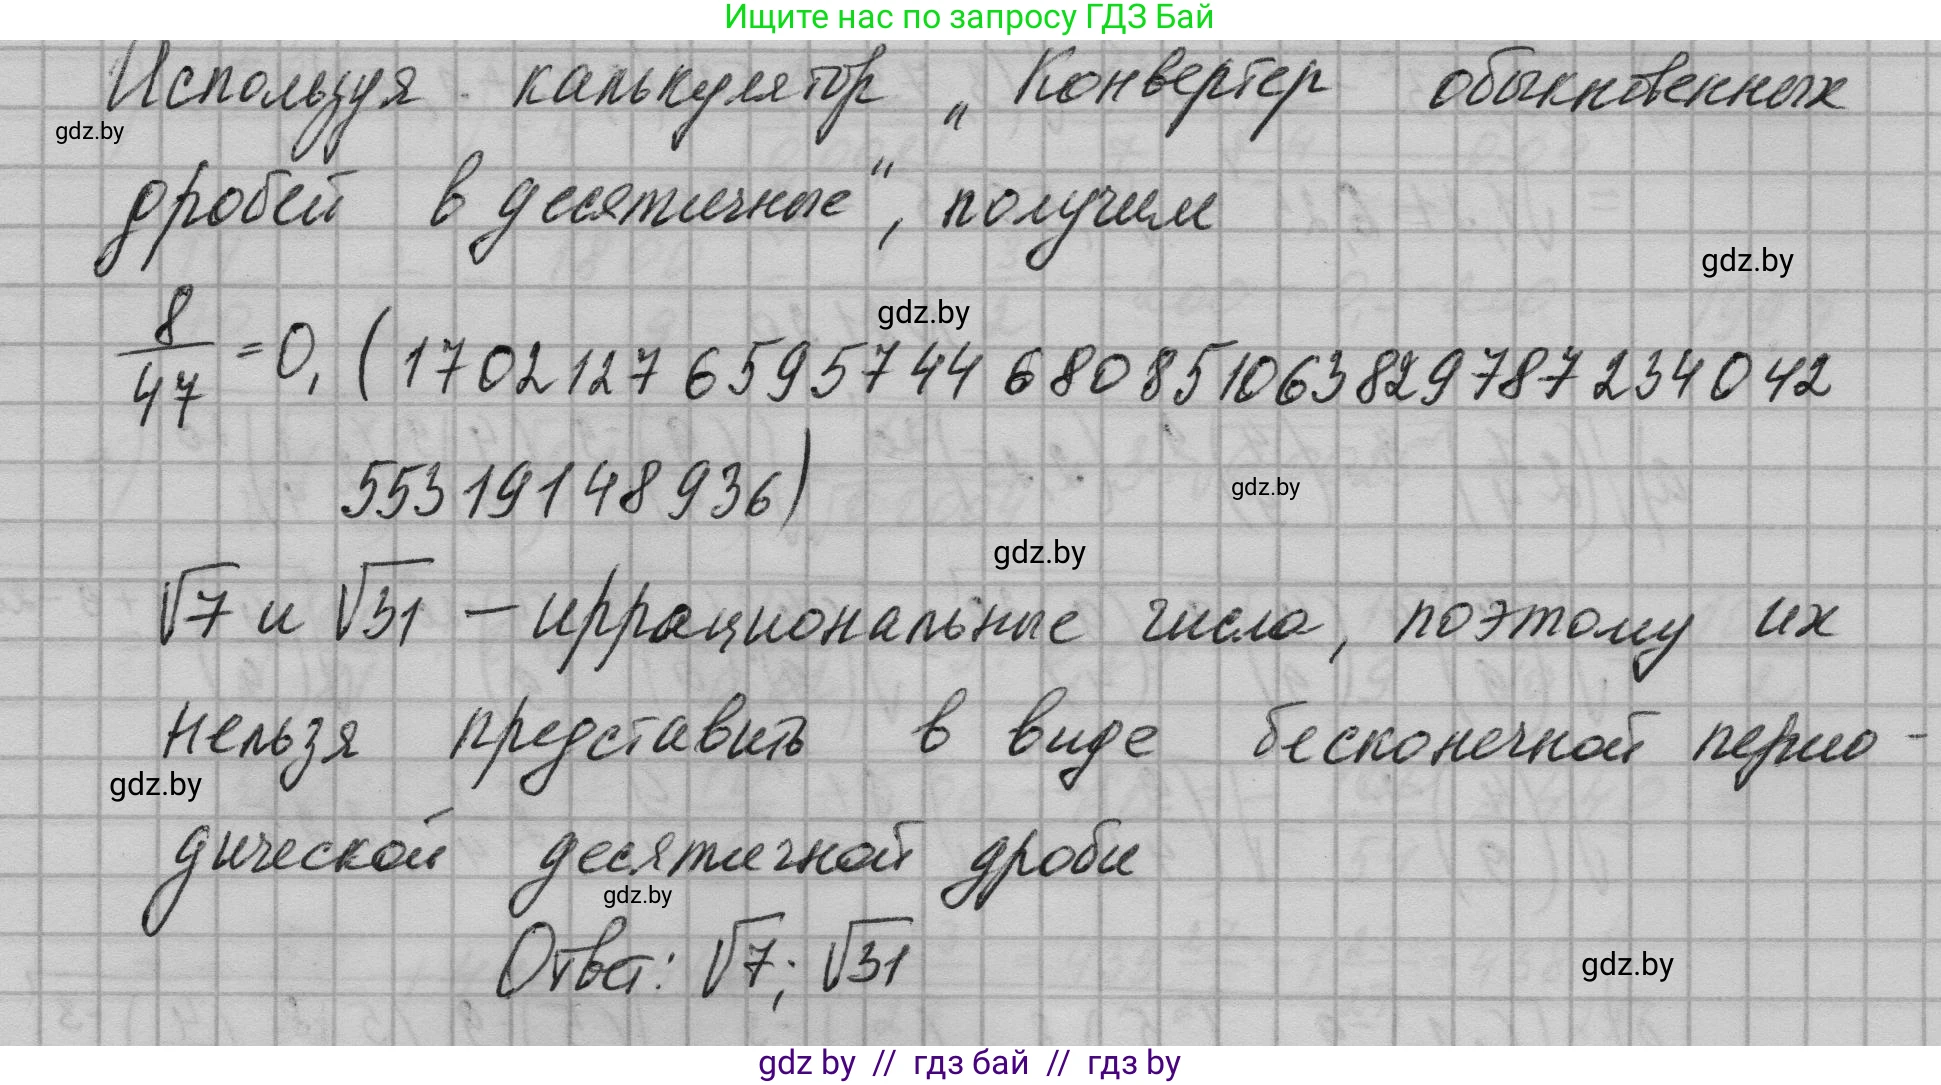 Ищите нас по запросу ГДЗ Бай
Используя калькулятор „Конвертер обыкновенных
gdz.by
дробей в десятичные“, получим
gdz.by
gdz.by
8/47 = 0,(17021276595744680851063829787234042
55319148936)
gdz.by
gdz.by
√7 и √31 – иррациональные числа, поэтому их
нельзя представить в виде бесконечной перио-
gdz.by
дической десятичной дроби
gdz.by
Ответ: √7; √31
gdz.by
gdz by // гдз бай // гдз by